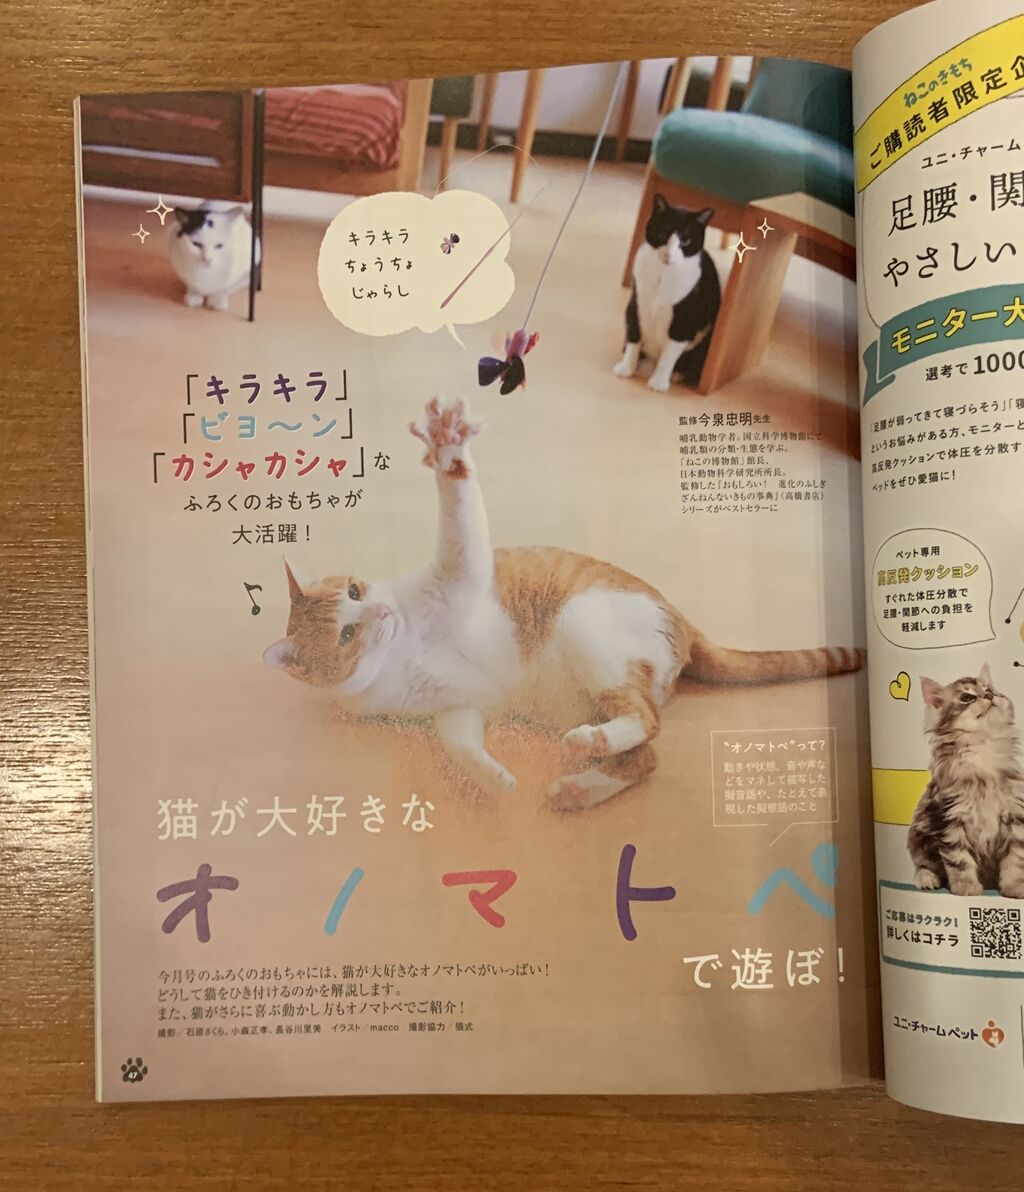 キラキラ
ちょうちょ
じゃらし
「キラキラ」
「ビヨ〜ン」
「カシャカシャ」な
ふろくのおもちゃが
大活躍！
監修 今泉忠明先生
哺乳動物学者。国立科学博物館にて
哺乳類の分類・生態を学ぶ。
「ねこの博物館」館長、
日本動物科学研究所所長。
監修した『おもしろい！ 進化のふしぎ
ざんねんないきもの事典』（高橋書店）
シリーズがベストセラーに
“オノマトペ”って？
動きや状態、音や声な
どをマネして描写した
擬音語や、たとえて表
現した擬態語のこと
猫が大好きな
オノマトペ
で遊ぼ！
今月号のふろくのおもちゃには、猫が大好きなオノマトペがいっぱい！
どうして猫をひき付けるのかを解説します。
また、猫がさらに喜ぶ動かし方もオノマトペでご紹介！
撮影／石原さくら、小森正孝、長谷川里美 イラスト／macco 撮影協力／猫式
47
ねこのきもち
ご購読者限定企
ユニ・チャーム
足腰・関
やさしい
モニター大
選考で1000
「足腰が弱ってきて寝づらそう」「寝
というお悩みがある方、モニターと
高反発クッションで体圧を分散す
ベッドをぜひ愛猫に！
ペット専用
高反発クッション
すぐれた体圧分散で
足腰・関節への負担を
軽減します
ご応募はラクラク！
詳しくはコチラ
ユニ・チャーム ペット